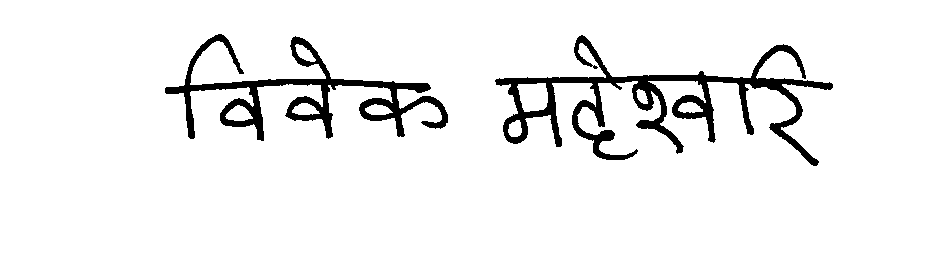 विवेक महेश्वरि